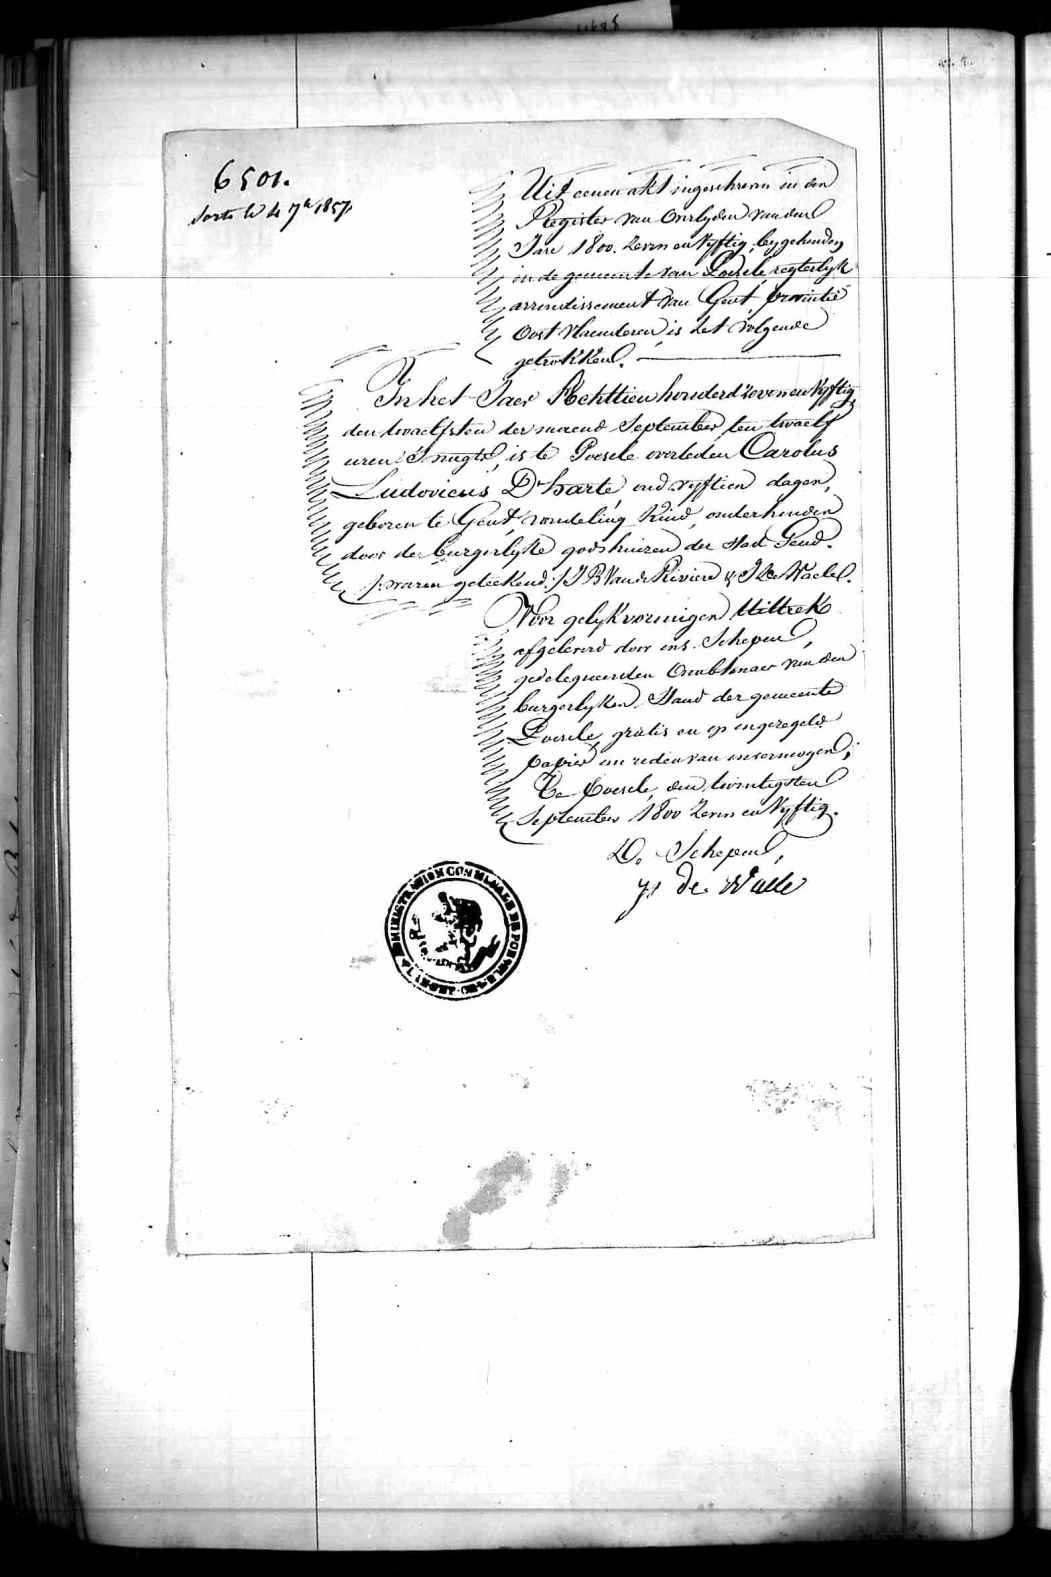 6501.
Sortie le 4 7bre 1857
Uit eenen akt ingeschreven in den
Register van Overlyden van den
Jare 1800. Zeven en Vyftig, bygehouden
in de gemeente van Poesele, regterlyk
arrondissement van Gent, provintie
Oost Vlaenderen, is het volgende
getrokken.
In het Jaer Achttien honderd zeven en Vyftig
den twaelfsten der maend September ten twaelf
uren 's nagts, is te Poesele overleden Carolus
Ludovicus D'harte, oud vyftien dagen,
geboren te Gent, vondeling Kind, onderhouden
door de burgerlyke godshuizen der Stad Gend.
/: waren geteekend :/ J B Van de Riviere & J De Waele.
Voor gelykvormigen Uittrek
afgeleverd door ons Schepen,
gedelegueerden Ambtenaer van den
burgerlyken Stand der gemeente
Poesele, gratis en op ongezegeld
papier om reden van onvermogen;
Te Poesele, den twintigsten
September 1800 Zeven en Vyftig.
De Schepen,
de Waele
ADMINISTRATION COMMUNALE DE POESELE